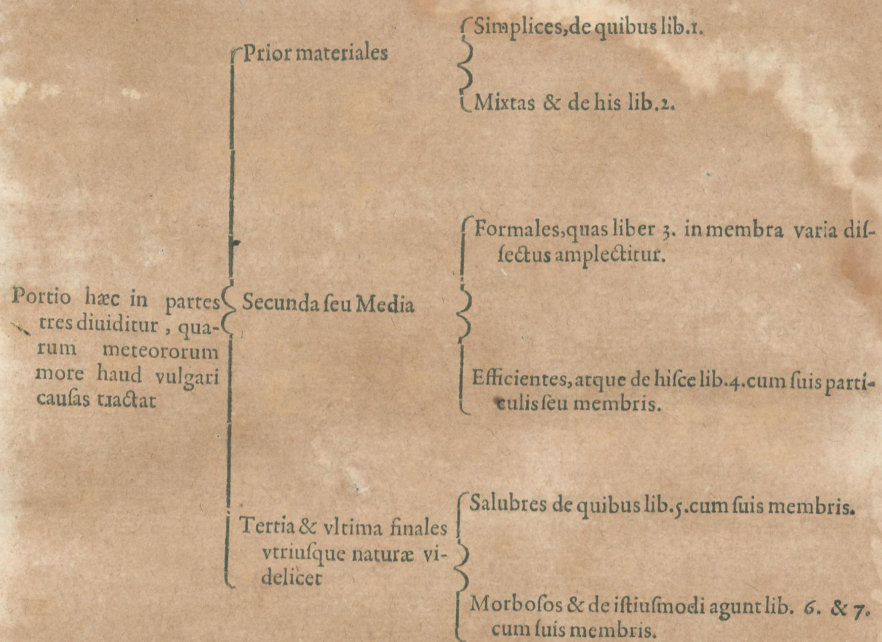 Portio hæc in partes
tres diuiditur, qua-
rum meteororum
more haud vulgari
causas tractat
Prior materiales
Simplices, de quibus lib.1.
Mixtas & de his lib.2.
Secunda seu Media
Formales, quas liber 3. in membra varia dis-
sectus amplectitur.
Efficientes, atque de hisce lib.4. cum suis parti-
culis seu membris.
Tertia & vltima finales
vtriusque naturæ vi-
delicet
Salubres de quibus lib.5. cum suis membris.
Morbosos & de istiusmodi agunt lib. 6. & 7.
cum suis membris.